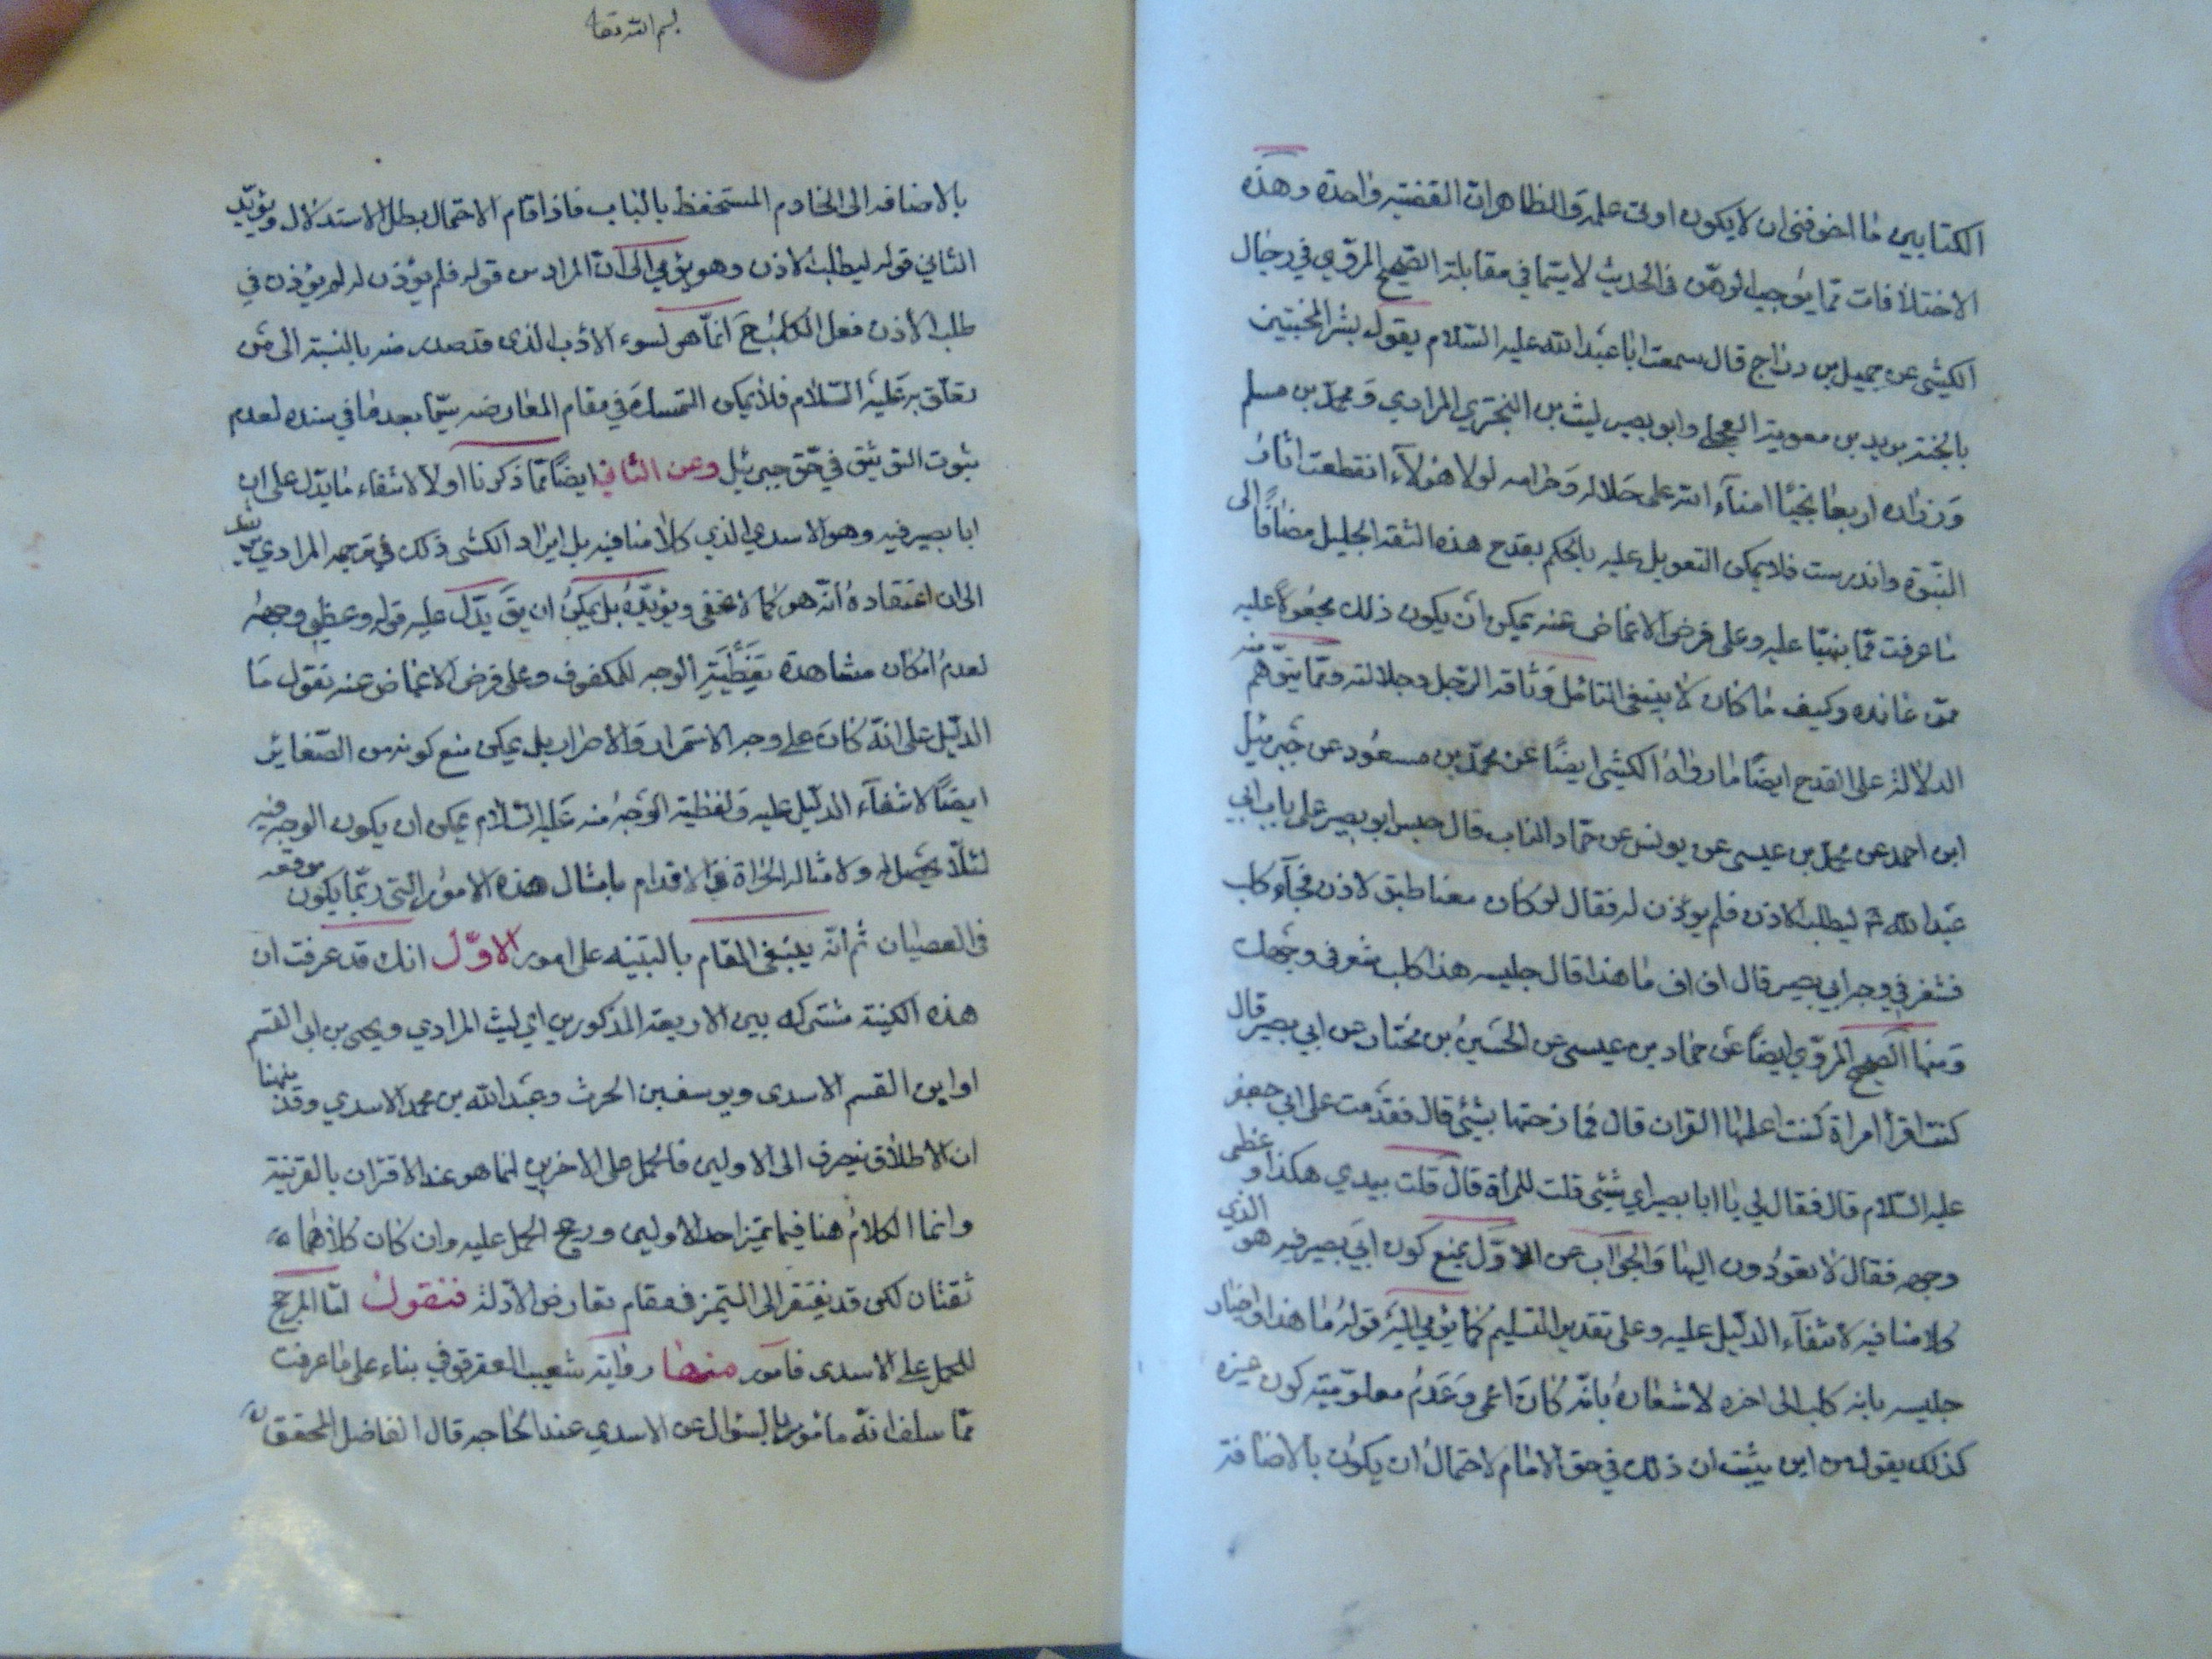 الكتابين ما اخوفني ان لا يكون اوتى علمه والظاهر ان القضيه واحدة وهذه
الاختلافات مما يوجب الوهن في الحديث لا سيما في مقابلة الصحيح المروي في رجال
الكشي عن جميل بن دراج قال سمعت ابا عبد الله عليه السلام يقول بشر المخبتين
بالجنة بريد بن معوية العجلي وابو بصير ليث بن البختري المرادي ومحمد بن مسلم
وزراره اربعة نجبا امناء الله على حلاله وحرامه لولا هؤلاء انقطعت اثار
النبوة واندرست فلا يمكن التعويل عليه بالحكم بقدح هذه الثقة الجليل مضافا الى
ما عرفت مما نبهنا عليه وعلى فرض الاغماض عنه يمكن ان يكون ذلك مجعولا عليه
ممن عانده وكيف ما كان لا ينبغي التامل في وثاقة الرجل وجلالته ومما يتوهم منه
الدلالة على القدح ايضا ما رواه الكشي ايضا عن محمد بن مسعود عن جبرئيل
ابن احمد عن محمد بن عيسى عن يونس عن حماد الناب قال جلس ابو بصير على باب ابي
عبد الله ع ليطلب الاذن فلم يؤذن له فقال لو كان معنا طبق لاذن فجآء كلب
فشغر في وجه ابي بصير قال اف اف ما هذا قال جليسه هذا كلب شغر في وجهك
ومنها الصحيح المروي ايضا عن حماد بن عيسى عن الحسين بن مختار عن ابي بصير قال
كنت اقرأ امراة كنت اعلمها القران قال فمازحتها بشيئ قال فقدمت على ابي جعفر
عليه السلام قال فقال لي يا ابا بصير اي شيئ قلت للمرأة قال قلت بيدي هكذا و غطى
وجهه فقال لا تعودون اليها والجواب عن الاول يمنع كون ابي بصير فيه هو الذي
كلامنا فيه لانتفآء الدليل عليه وعلى تقدير التسليم كما يؤمي اليه قوله ما هذا واخبار
جليسه بانه كلب الى اخره لاشعاره بانه كان اعمى وعدم معلومية كون
كذلك يقول من اين يثبت ان ذلك في حق الامام لاحتمال ان يكون بالاضافة
بسم الله تعا
بالاضافه الى الخادم المستحفظ بالباب فاذا قام الاحتمال بطل الاستدلال ويؤيد
الثاني قوله ليطلب الاذن وهو يؤمي الى ان المراد من قوله فلم يؤذن له لم يؤذن في
طلب الاذن فعل الكلب ح انما هو لسوء الأدب الذى قد صدر منه بالنسبة الى من
تعلق به عليه السلام فلا يمكن التمسك في مقام المعارضه سيما بعد ما في سنده لعدم
ثبوت التوثيق في حق جبرئيل وعن الثاني ايضا مما ذكرنا اولا لانتفاء ما يدل على ان
ابا بصير فيه وهو الاسدي الذي كلامنا فيه بل ايراد الكشى ذلك في ترجمه المرادي
الى ان اعتقاده انه هو كما لا يخفى ويؤيده بل يمكن ان يق يدل عليه قوله وغطى وجهه
لعدم امكان مشاهدة تغطية الوجه للمكفوف وعلى فرض الاغماض عنه نقول ما
الدليل على انه كان على وجه الاستمرار والاصرار بل يمكن منع كونه من الصغاير
ايضا لانتفآء الدليل عليه وتغطية الوجه منه عليه السلام يمكن ان يكون الوجه فيه
لئلا يحصل له ولامثاله الجراة في الاقدام بامثال هذه الامور التى ربما يكون موقعه
فى العصيان ثم انه ينبغى المقام بالتنبيه على امور الاول انك قد عرفت ان
هذه الكنية مشتركه بين الاربعة المذكورين اي ليث المرادي ويحيى بن ابى القسم
او ابن القسم الاسدى ويوسف بن الحرث وعبد الله بن محمد الاسدي وقد نبهنا
ان الاطلاق ينصرف الى الاولين فالحمل على الاخرين انما هو عند الاقتران بالقرينة
وانما الكلام هنا فيما تميز احد الاولين ورجح الحمل عليه وان كان كلاهما
ثقتان لكن قد يفتقر الى التميز فى مقام تعارض الأدلة فنقول اما المرجح
للحمل على الأسدى فامور منها رواية شعيب العقرقوفي بناء على ما عرفت
مما سلف انه مامور بالسؤال عن الاسدي عند الحاجه قال الفاضل المحقق